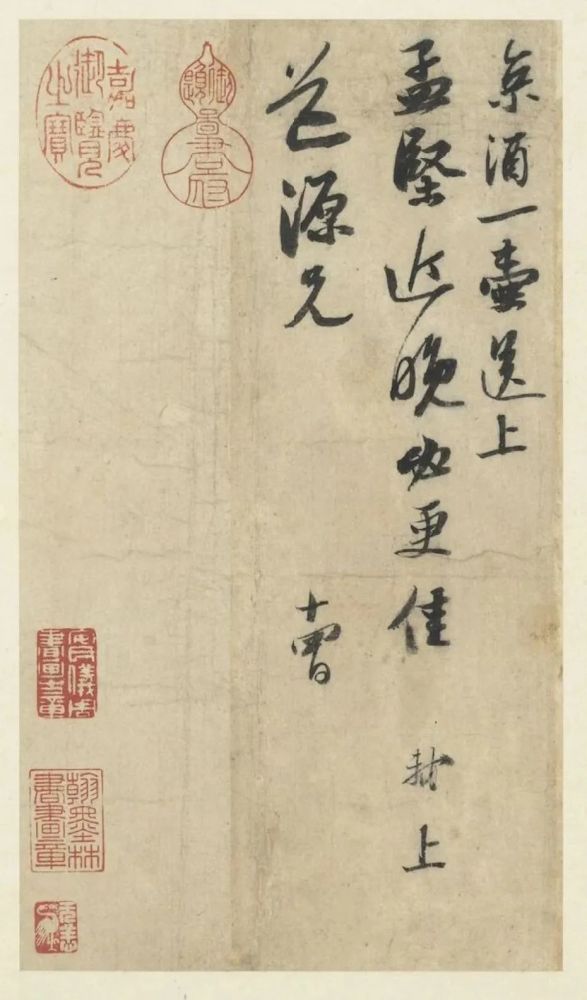 京酒一壷送上
孟堅近晚必更佳 軾上
道源兄 十四日
嘉慶御覽之寶
安氏儀周書畫之章
翰墨林書畫章